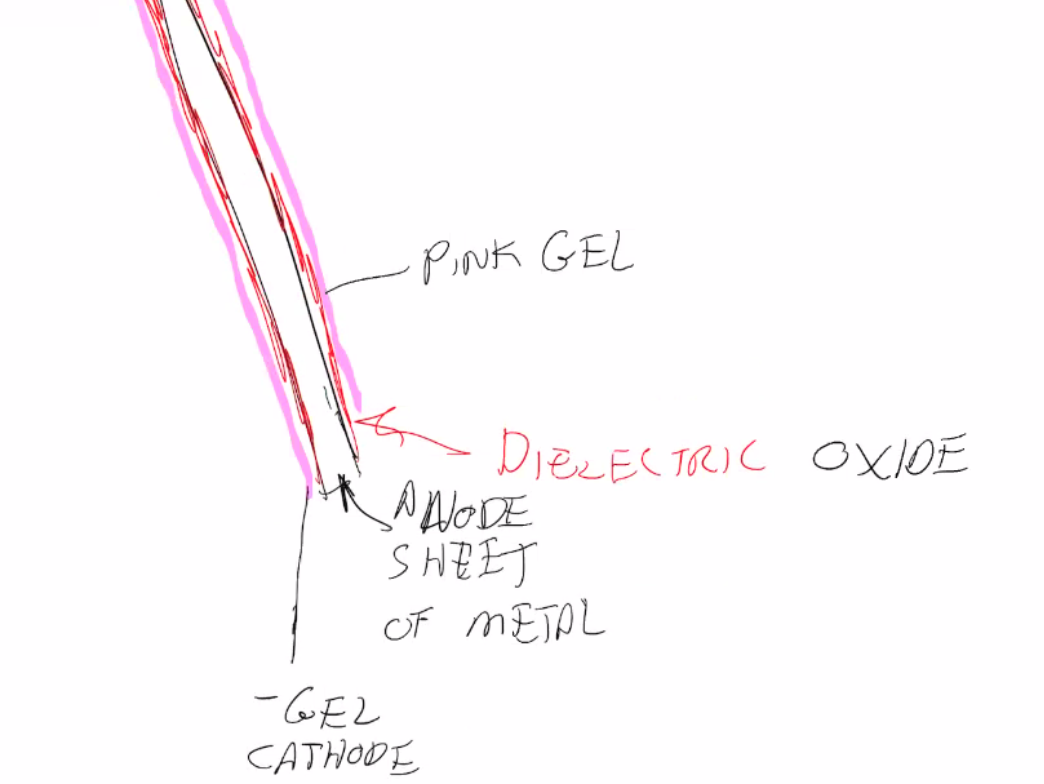 PINK GEL
DIELECTRIC OXIDE
ANODE
SHEET
OF METAL
-GEL
CATHODE